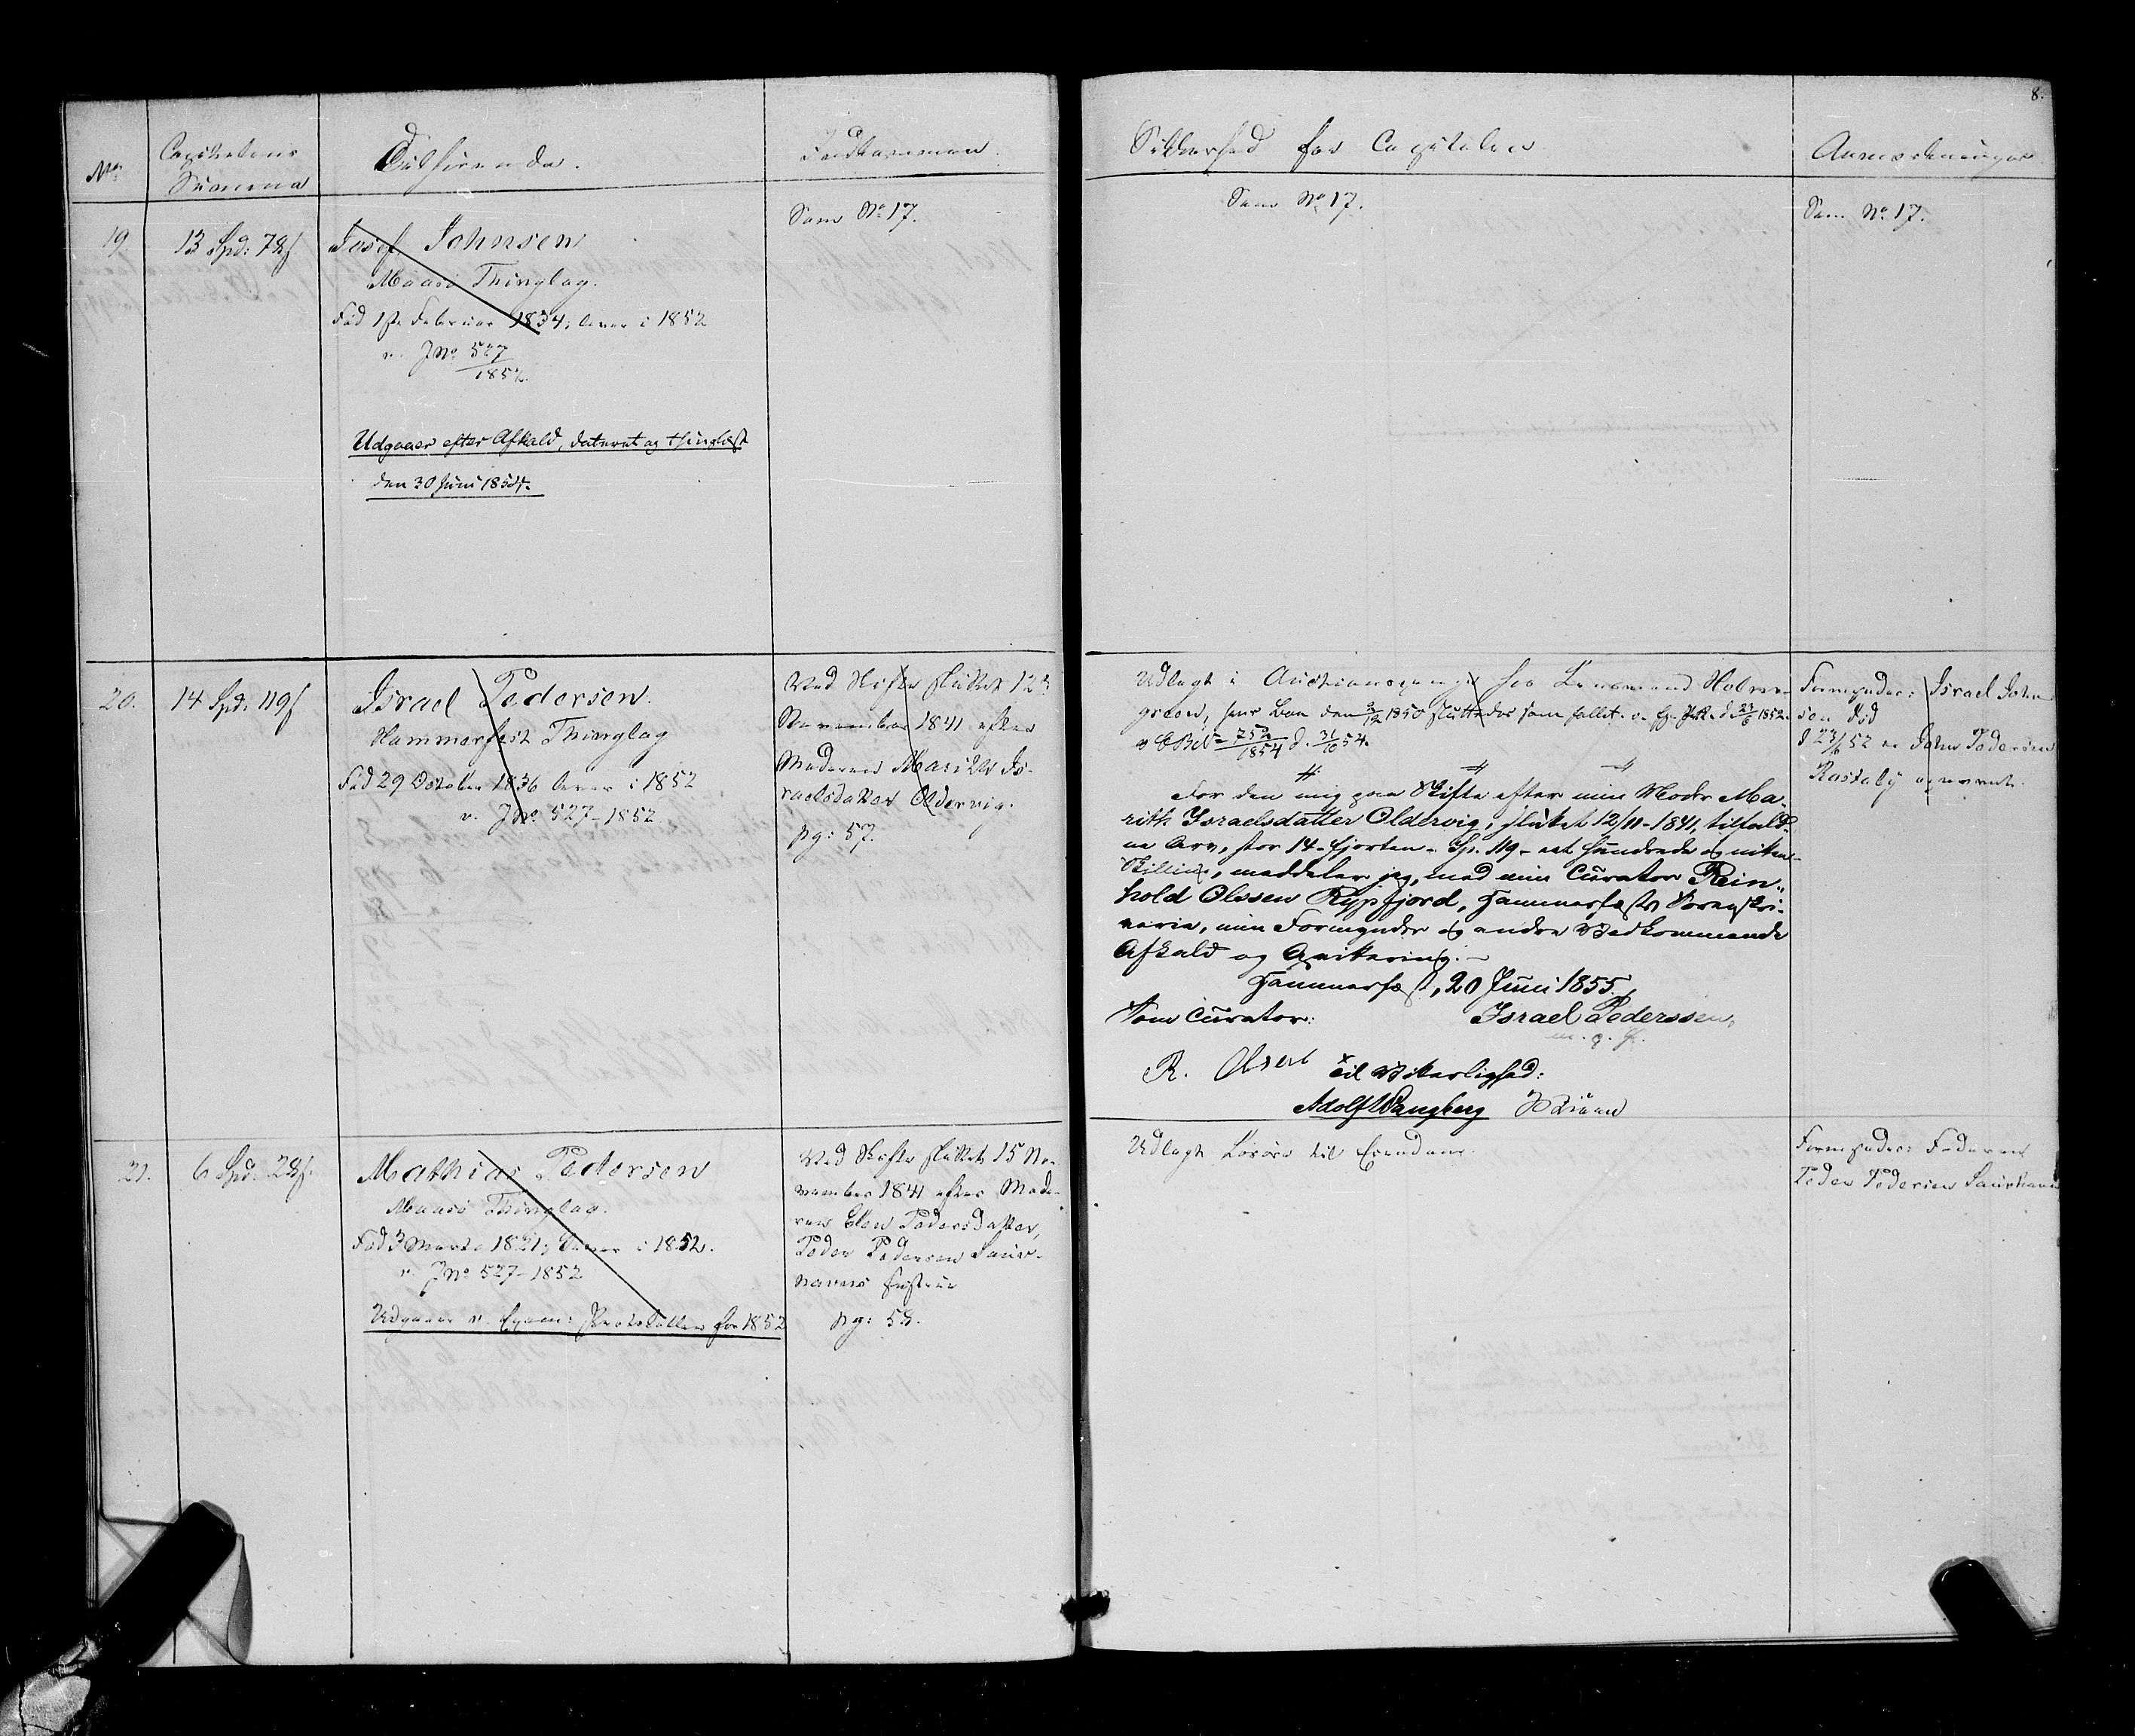 8.
No.
Capitalens
Summa
Tilhørende.
Indkommen.
Sikkerhed for Capitalen
Anmærkninger
19.
13 Spd: 78 ß
Josef Johnsen
Maasø Thinglag.
Fød 1ste Februar 1834; lever i 1852
v. J No. 527
1852.
Udgaaer efter Afkald, dateret og thinglæst
den 30 Juni 1854.
Som No. 17.
Som No. 17.
Som No. 17.
20.
14 Spd: 119 ß
Israel Pedersen.
Hammerfest Thinglag
Fød 29 October 1836 lever i 1852
v. J No. 527-1852
Ved Skifte sluttet 12te
November 1841 efter
Moderen Marith Is-
raelsdatter Oldervig.
pg: 57.
Udlagt i Auctionspenge hos Lensmand Holm-
green, hvis Boe den 3/12 1850 sluttedes som fallit. v. Ex. Prtk. d. 23/6 1852.
1854 d. 31/10 54.
For den mig paa Skifte efter min Moder Ma-
rith Israelsdatter Oldervig, sluttet 12/11-1841, tilfald-
ne Arv, stor 14 - fjorten - Sp. 119 - eet hundrede og nitten -
Skilling, meddeler jeg, med min Curator Rein-
hold Olssen Rypfjord, Hammerfests Sorenskri-
veri, min Formynder og andre Vedkommende
Afkald og Qvittering. -
Hammerfest, 20 Juni 1855.
Som Curator:
Israel Pederssen,
m. p. P.
R. Olsen
Til Vitterlighed:
Adolf Wangberg
Formynder: Israel John-
sen död
d 23/6 52 er John Pedersen
Rastaby opnævnt.
21.
6 Spd: 28 ß.
Mathias Pedersen
Maasø Thinglag.
Fød 3 Marts 1821; lever i 1852.
v. J No. 527-1852
Udgaaer v. Exam: Protokollen for 1852
Ved Skifte sluttet 15 No-
vember 1841 efter Mode-
ren Elen Pedersdatter,
Peder Pedersen Saur-
havns Hustrue
pg: 58.
Udlagt Løsøre til Eiendom.
Formynder: Faderen
Peder Pedersen Saurhavn